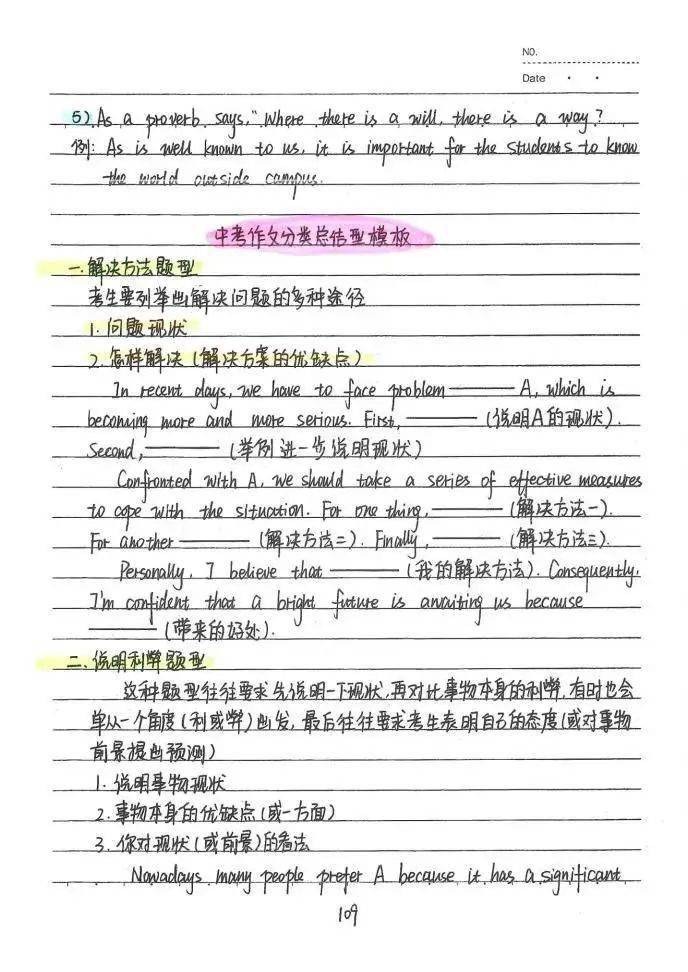 NO.
Date · ·
5) As a proverb says, "Where there is a will, there is a way?
例: As is well known to us, it is important for the students to know
the world outside campus.
中考作文分类总结型模板
一.解决方法题型
考生要列举出解决问题的多种途径
1. 问题现状
2. 怎样解决(解决方案的优缺点)
In recent days, we have to face problem ——— A, which is
becoming more and more serious. First, ——— (说明A的现状).
Second, ——— (举例进一步说明现状)
Confronted with A, we should take a series of effective measures
to cope with the situation. For one thing, ——— (解决方法一).
For another ——— (解决方法二). Finally, ——— (解决方法三).
Personally, I believe that ——— (我的解决方法). Consequently,
I'm confident that a bright future is awaiting us because
——— (带来的好处).
二.说明利弊题型
这种题型往往要求先说明一下现状,再对比事物本身的利弊,有时也会
单从一个角度(利或弊)出发,最后往往要求考生表明自己的态度(或对事物
前景提出预测)
1. 说明事物现状
2. 事物本身的优缺点(或一方面)
3. 你对现状(或前景)的看法
Nowadays many people prefer A because it has a significant
109